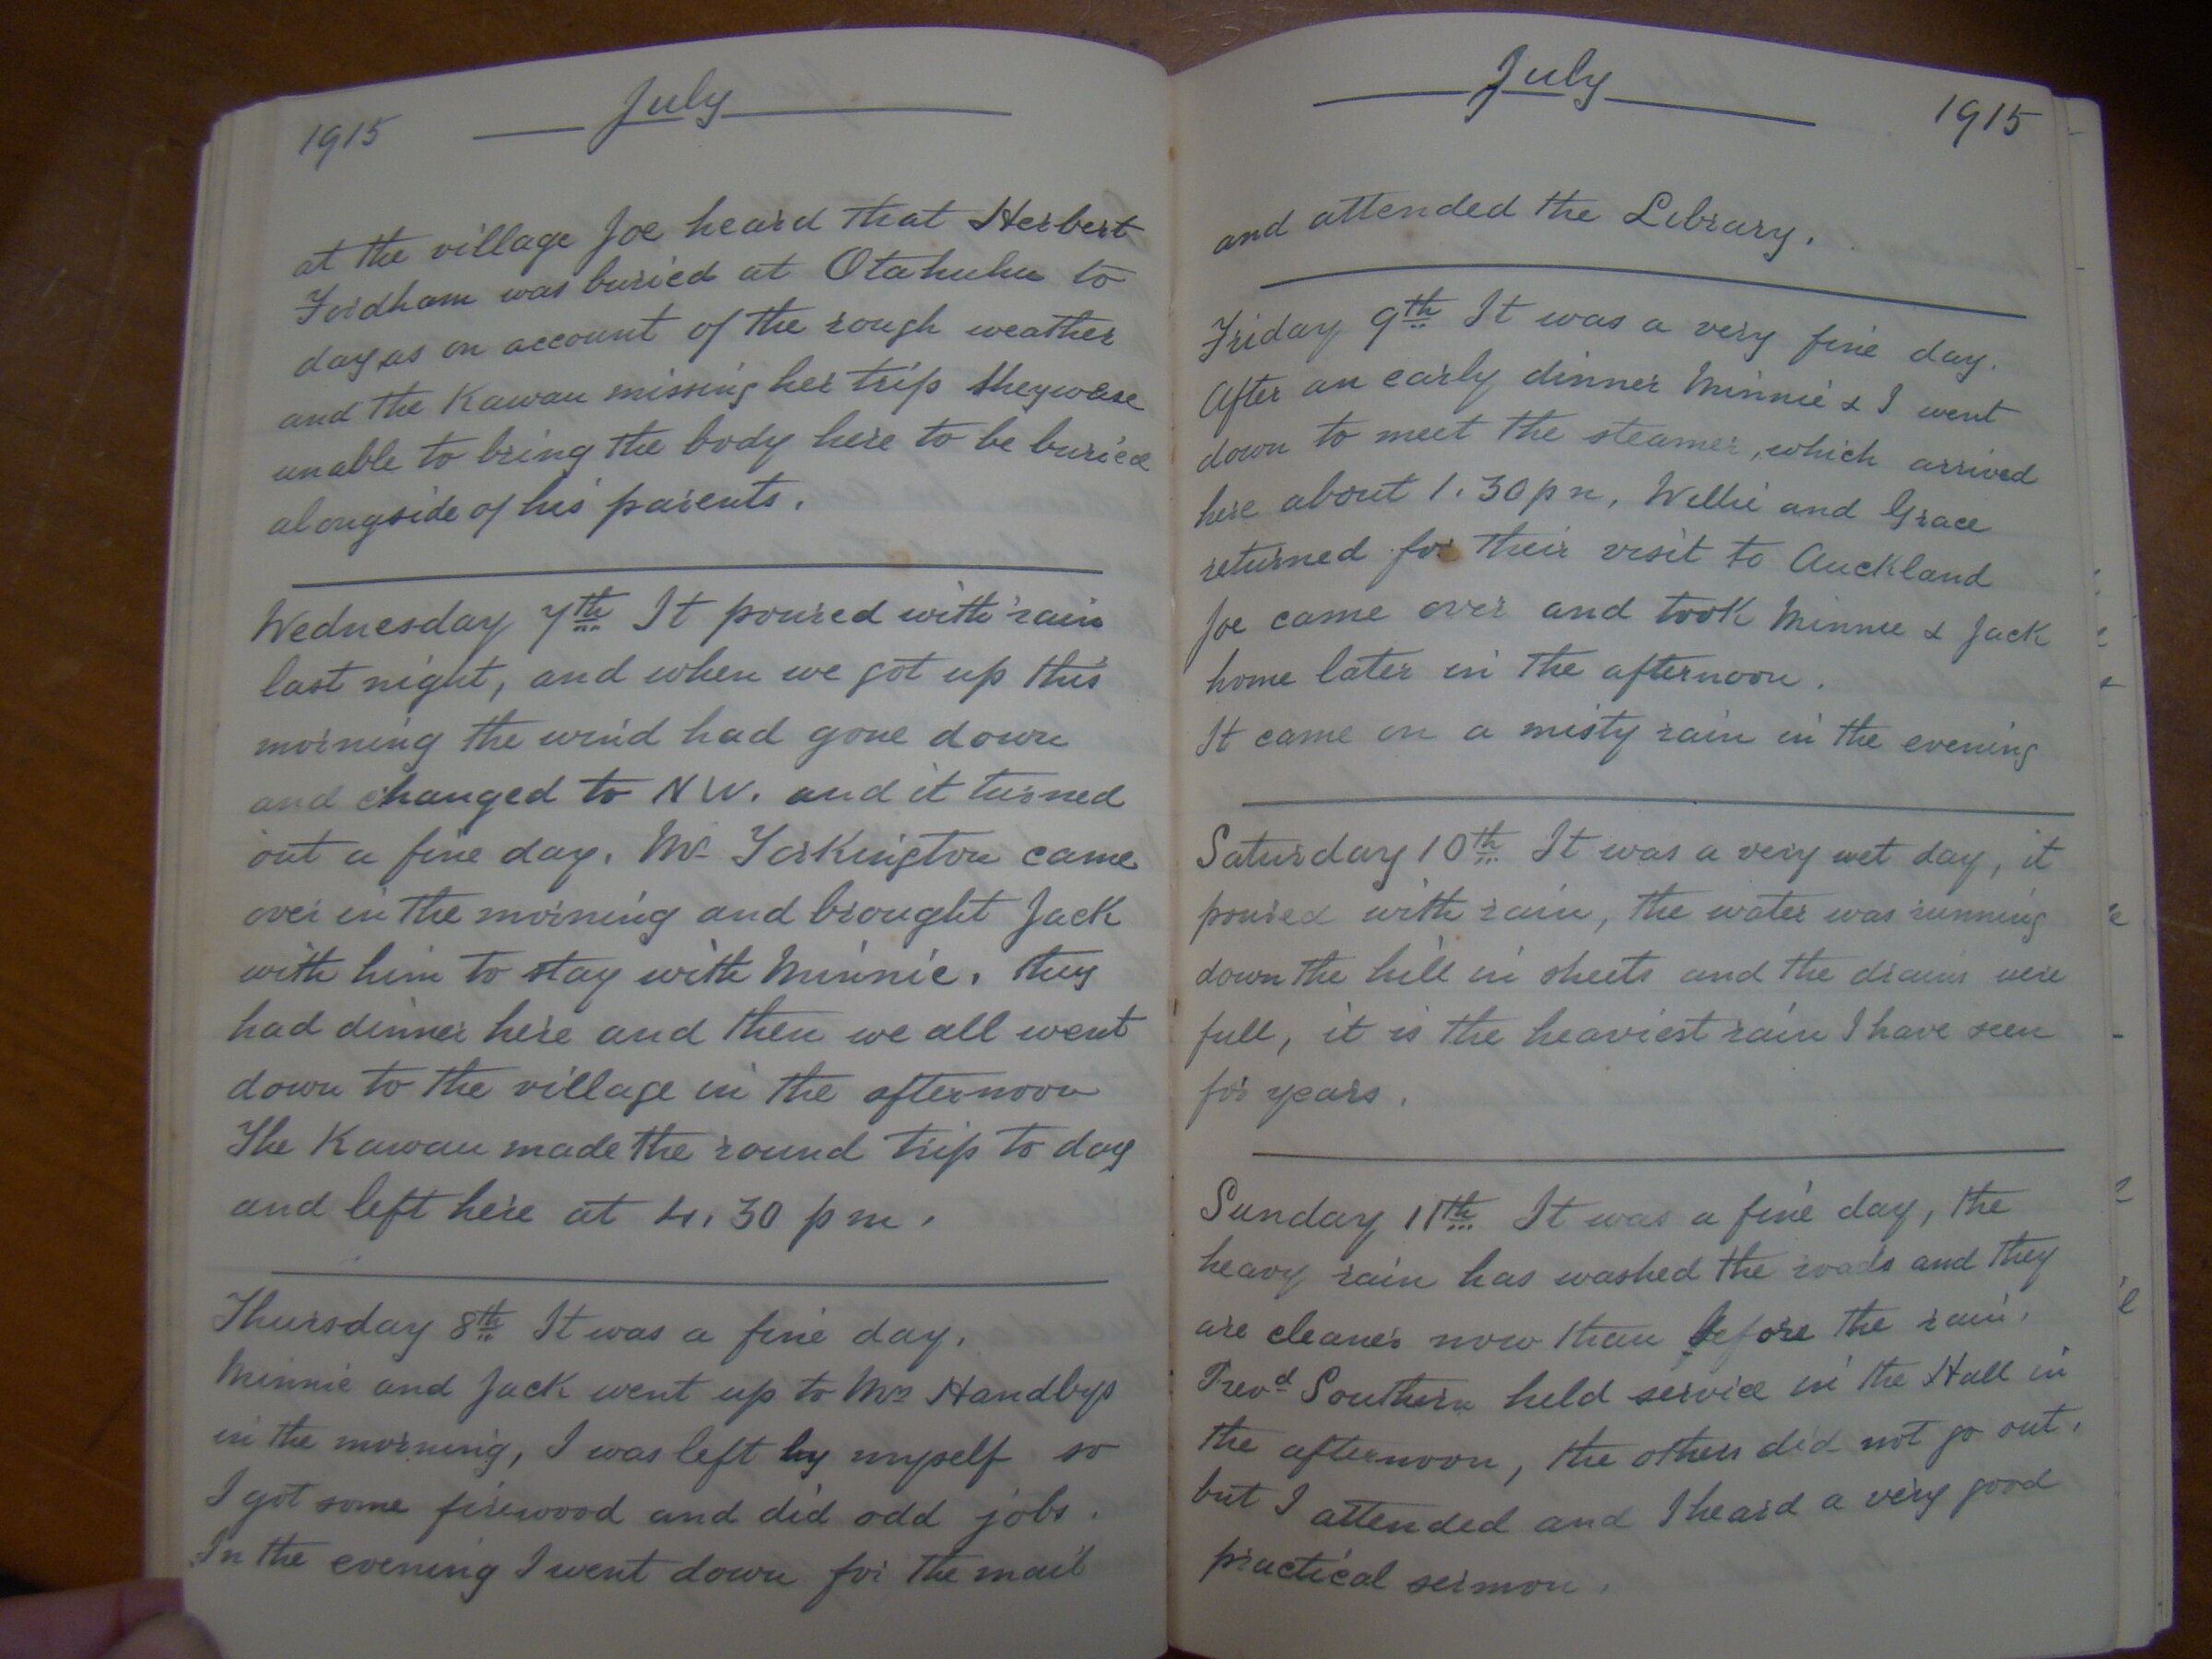 1915 July
at the village Joe heard that Herbert
Fordham was buried at Otahuhu to
day, as on account of the rough weather
and the Kawau missing her trip they were
unable to bring the body here to be buried
alongside of his parents.
Wednesday 7th It poured with rain
last night, and when we got up this
morning the wind had gone down
and changed to NW. and it turned
out a fine day. Mr Torkington came
over in the morning and brought Jack
with him to stay with Minnie. they
had dinner here and then we all went
down to the village in the afternoon
The Kawau made the round trip to day
and left here at 4.30 pm.
Thursday 8th It was a fine day.
Minnie and Jack went up to Mrs Handbys
in the morning, I was left by myself so
I got some firewood and did odd jobs.
In the evening I went down for the mail
July 1915
and attended the Library.
Friday 9th It was a very fine day.
After an early dinner Minnie & I went
down to meet the steamer, which arrived
here about 1.30 pm, Willie and Grace
returned for their visit to Auckland
Joe came over and took Minnie & Jack
home later in the afternoon.
It came on a misty rain in the evening
Saturday 10th It was a very wet day, it
poured with rain, the water was running
down the hill in sheets and the drains were
full, it is the heaviest rain I have seen
for years.
Sunday 11th It was a fine day, the
heavy rain has washed the roads and they
are cleaner now than before the rain.
Revd Southern held service in the Hall in
the afternoon, the others did not go out.
but I attended and I heard a very good
practical sermon.